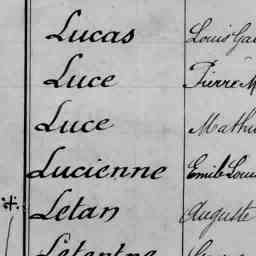 Lucas Louis
Luce Pierre M
Luce Mathu
Lucienne Emile Loui
Letan Auguste